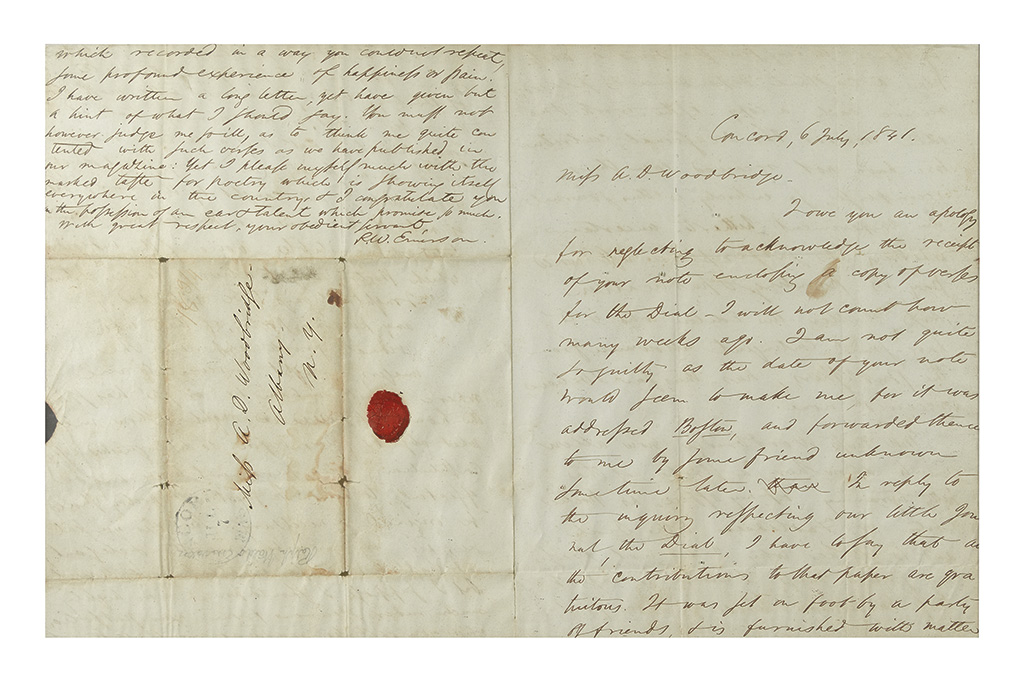 which recorded in a way you could not repeat,
some profound experience of happiness or pain.
I have written a long letter, yet have given but
a hint of what I should say. You must not
however judge me so ill, as to think me quite con
tented with such verses as we have published in
our magazine: Yet I please myself much with the
marked taste for poetry which is showing itself
everywhere in the country, & I congratulate you
on the possession of an ear & talent which promise so much.
With great respect, your obedient servant,
R. W. Emerson.
Miss A. D. Woodbridge
Albany
N. Y.
Concord, 6 July, 1841.
Miss A. D. Woodbridge.
I owe you an apology
for neglecting to acknowledge the receipt
of your note enclosing a copy of verses
for the Dial – I will not count how
many weeks ago. I am not quite
so guilty as the date of your note
would seem to make me for it was
addressed Boston, and forwarded thence
to me by some friend unknown
"sometime" later. In reply to
the inquiry respecting our little Jour
nal, the Dial, I have to say that all
the contributions to that paper are gra
tuitous. It was set on foot by a party
of friends, & is furnished with matter